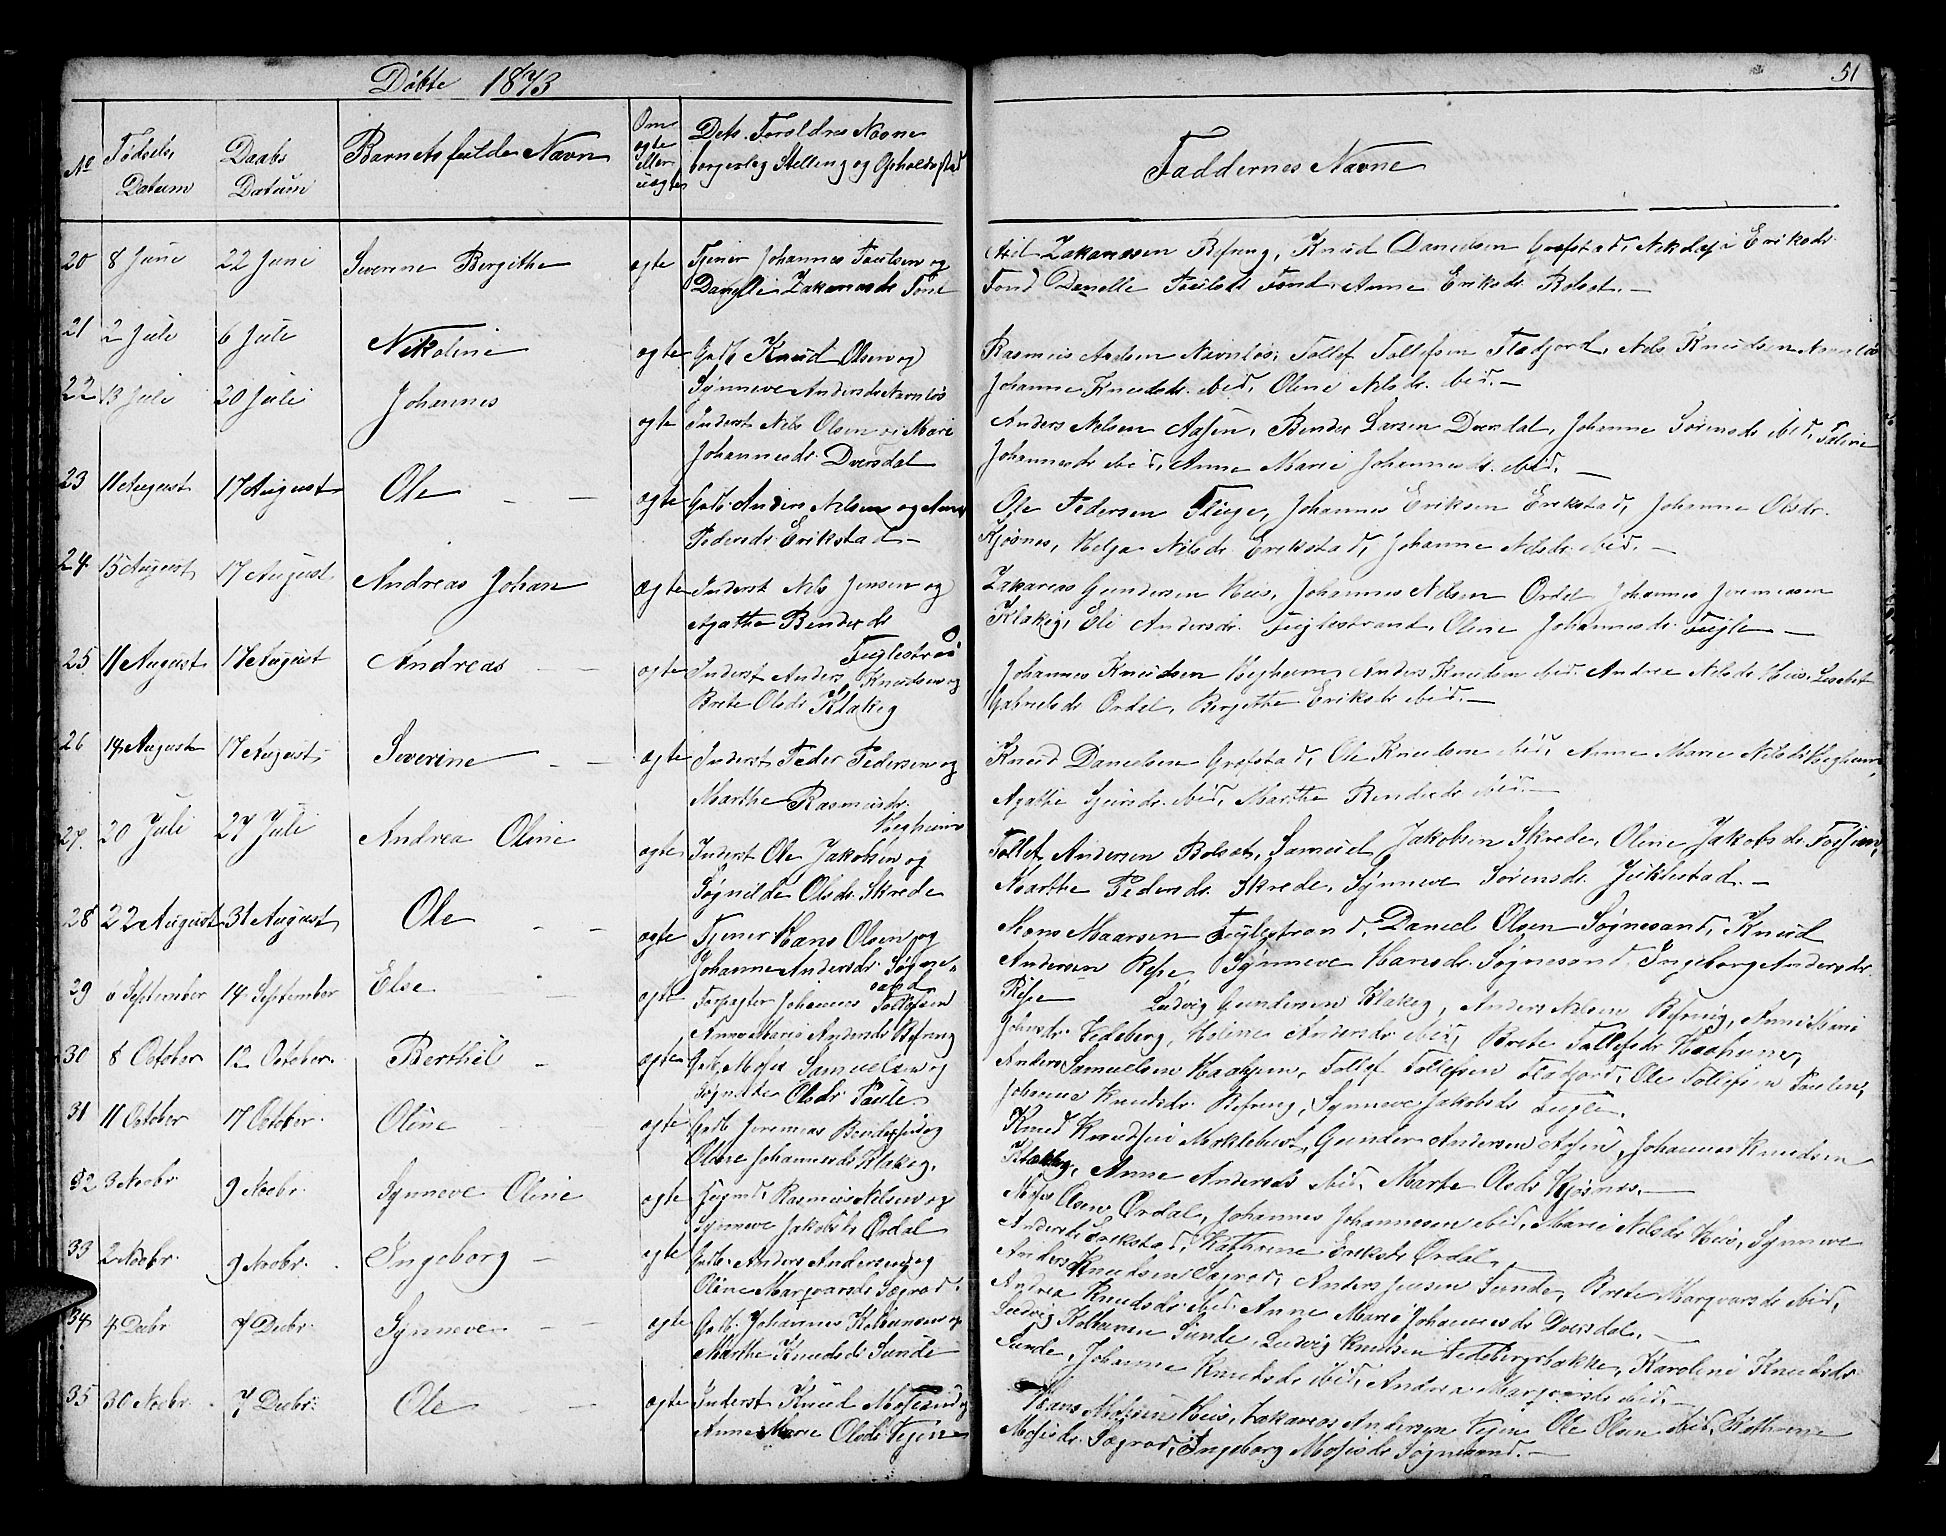 Døbte 1873
51
No
Fødsels
Datum
Daabs
Datum
Barnets fulde Navn
Om
ægte
eller
uægte
Dets Foreldres Navne
borgerleg Stelling og Opholdssted
Faddernes Navne
20 8 Juni 22 Juni Severine Bergithe ægte Tjener Johannes Paulsen og
Danelle Zakariasdr Fond
Zakariassen Befring, Knud Danielsen Grøfstad, Nikolai Eriksdr.
Fond Danelle Paulsdr Fond, Anne Eriksdr Bolset.
21 2 Juli 6 Juli Nikoline ægte Gdb Knud Olsen og
Synneve Andersdr Navnløs
Rasmus Andersen Navnløs, Tollef Tollefsen Fladjord, Nels Knudsen Navnløs
Johanne Knudsdr. ibid, Oline Nelsdr. ibid.
22 13 Juli 20 Juli Johannes ægte Inderst Nils Olsen og Mari
Johannesdr. Dversdal
Anders Nelsen Aasen, Bendix Larsen Dversdal, Johanne Sørensdr ibid,
Johannesdr ibid, Anne Marie Johannesdr. ibid.
23 11 August 17 August Ole ægte Gdb. Anders Nelsen og Anne
Pedersdr. Erikstad
Ole Pedersen Fluge, Johannes Eriksen Erikstad, Johanne Olsdr.
Kjøsnes, Helga Nilsdr Erikstad, Johanne Nelsdr. ibid.
24 15 August 17 August Andreas Johan ægte Inderst Nils Jensen og
Agathe Bendixdr
Fuglestrand
Zakarias Gundersen Hus, Johannes Nelsen Ordal, Johannes Jeremiassen
Klakeg, Eli Andersdr. Fuglestrand, Oline Johannesdr. Fugle
25 11 August 17 August Andreas ægte Inderst Anders Knudsen og
Brete Olsdr Klakeg
Johannes Knudsen Hegheim, Anders Knudsen ibid. Andrea Nilsdr Hus,
Gabrielsdr Ordal, Bergithe Eriksdr ibid.
26 14 August 17 August Severine ægte Inderst Peder Pedersen og
Marthe Rasmusdr.
Hegheim
Knud Danielsen Grøfstad, Ole Knudsen ibid, Anne Marie Nilsdr Hegheim,
Agathe ibid, Marthe Bendixdr ibid.
27. 20 Juli 27 Juli Andrea Oline ægte Inderst Ole Jakobsen og
Søgnilde Olsdr. Skrede
Tollef Andersen Bolset, Samuel Jakobsen Skrede, Oline Jakobsdr Fossheim,
Marthe Pedersdr. Skrede, Synneve Sørensdr. Juklestad.
28 22 August 31 August Ole ægte Tjener Hans Olsen og
Johanne Andersdr. Søgne-
sand
Mons Fuglestrand, Daniel Olsen Søgnesand, Knud
Andersen Ripe Synneve Hansdr. Søgnesand, Ingeborg Andersdr
Ripe
29 6 September 14 September Else ægte Forpagter Johannes Tollefsen
Anne Marie Andersdr Befring
Ludvig Gundersen Klakeg, Anders Nelsen Befring, Anne Marie
Johnsdr. Vedeberg, Helene Andersdr ibid, Brete Tollefsdr Haaheim,
30 8 October 12 October. Berthel ægte Gdb. Moses Samuelsen og
Søgnilde Olsdr. Paule
Anders Samuelsen Haaheim, Tollef Tollefsen Fladjord, Ole Tollefsen Paulen,
Johanne Knudsdr. Befring, Synneve Jakobsdr Fugle.
31 11 October 17 October. Oline ægte Gdb Jeremias Bendixsen og
Oline Johannesdr Klakeg.
Knud Knudsen Myklebust, Gunder Andersen Aasen, Johannes Knudsen
Klakeg, Anne Andersdr ibid, Marte Olsdr Kjøsnes.
32 3 Novbr 9 Novbr. Synneve Oline ægte Rasmus Nilsen og
Synneve Jakobsdr Ordal
Moses Olsen Ordal, Johannes Johannessen ibid, Marie Nilsdr Hus, Synneve
Andersdr. Erikstad, Kathrine Eriksdr Ordal.
33 2 Novbr. 9 Novbr. Ingeborg ægte Gdb. Anders Andersen og
Oline Margvarsdr Sægrod.
Anders Knudsen Sægrod, Anders Jensen Sunde, Brete Margvarsdr. ibid,
Andrea Knudsdr. ibid. Anne Marie Johannesdr Dversdal.
34 4 Decbr 7 Decbr. Synneve ægte Gdb. Johannes Kolbeinsen og
Marthe Knudsdr. Sunde
Ludvig Sunde, Ludvig Knudsen Vedebergsbakke, Karoline Knudsdr
Sunde, Johanne Knudsdr ibid, Andrea Margvarsdr ibid.
35 30 Novbr. 7 Decbr. Ole ægte Inderst Knud Mosesen og
Anne Marie Olsdr. Vejen
Hans Mosesen Hus, Zakarias Andersen Vejen, Ole Olsen ibid, Kathrine
Mosesdr. Sægrod, Ingeborg Mosesdr Søgnesand.